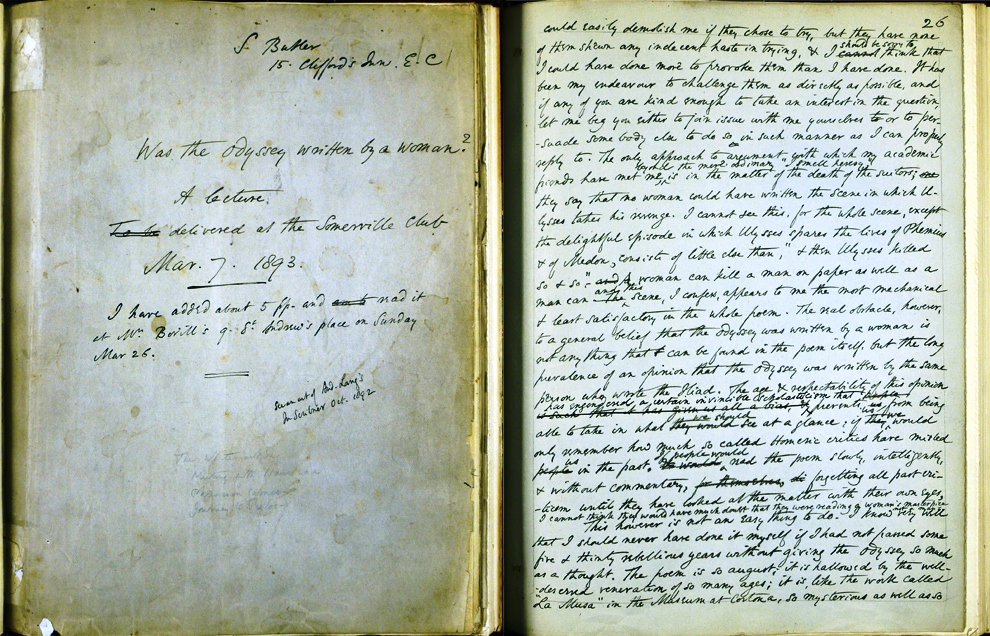 S. Butler
15. Clifford's Inn. E. C
Was the Odyssey written by a woman?
A lecture.
To be delivered at the Somerville Club
Mar. 7. 1893.
I have added about 5 pp. and read it
at Mrs Bovill's 9. St Andrew's place on Sunday
Mar 26.
see art of And. Lang's
in Scribner Oct. 1892
26
could easily demolish me if they chose to try, but they have none
of them shewn any indecent haste in trying, & I should be sorry to cannot think that
I could have done more to provoke them than I have done. It has
been my endeavour to challenge them as directly as possible, and
if any of you are kind enough to take an interest in the question,
let me beg you either to join issue with me yourselves or to per-
-suade some body else to do so in such manner as I can properly
reply to. The only approach to an argument with which my academic
beyond the mere ordinary "I smell heresy"
friends have met me, is in the matter of the death of the suitors;
they say that no woman could have written the scene in which U-
lysses takes his revenge. I cannot see this, for the whole scene, except
the delightful episode in which Ulysses spares the lives of Phemius
& of Medon, consists of little else than, "& then Ulysses killed
so & so": and a woman can kill a man on paper as well as a
man can any this The scene, I confess, appears to me the most mechanical
& least satisfactory in the whole poem. The real obstacle, however,
to a general belief that the Odyssey was written by a woman is
not any thing that can be found in the poem itself, but the long
prevalence of an opinion that the Odyssey was written by the same
person who wrote the Iliad. The age & respectability of this opinion
has engendered a certain invincible scholasticism that
is such that it has given us all a bias, & prevents us from being
able to take in what we should they would see at a glance; if they we would
only remember how much so called Homeric critics have misled
people us in the past. If people would read the poem slowly, intelligently,
& without commentary, for themselves, forgetting all past cri-
-ticism until they have looked at the matter with their own eyes,
I cannot think they would have much doubt that they were reading a woman's masterpiece
This however is not an easy thing to do. I know very well
that I should never have done it myself if I had not passed some
five & thirty rebellious years without giving the Odyssey so much
as a thought. The poem is so august; it is hallowed by the well-
-deserved veneration of so many ages; it is like the work called
"La Musa" in the Museum at Cortona, so mysterious as well as so